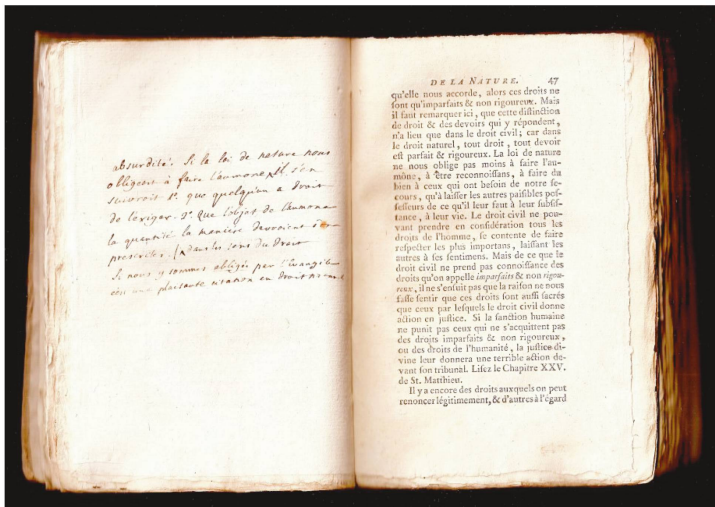 absurdité. Si la loi de nature nous
obligeoit à faire l'aumone, Il s'en
suivroit 1°. que quelqu'un a droit
de l'exiger. 2°. Que l'objet de l'aumone
la quantité la manière devroient être
prescrites. dans le sens du Droit
Si nous y sommes obligés par l'évangile
une plaisante citation en droit
DE LA NATURE. 47
qu'elle nous accorde, alors ces droits ne
sont qu'imparfaits & non rigoureux. Mais
il faut remarquer ici, que cette distinction
de droit & des devoirs qui y répondent,
n'a lieu que dans le droit civil; car dans
le droit naturel, tout droit, tout devoir
est parfait & rigoureux. La loi de nature
ne nous oblige pas moins à faire l'au-
mône, à être reconnoissans, à faire du
bien à ceux qui ont besoin de notre se-
cours, qu'à laisser les autres paisibles pos-
sesseurs de ce qu'il leur faut à leur subsis-
tance, à leur vie. Le droit civil ne pou-
vant prendre en considération tous les
droits de l'homme, se contente de faire
respecter les plus importans, laissant les
autres à ses sentimens. Mais de ce que le
droit civil ne prend pas connoissance des
droits qu'on appelle imparfaits & non rigou-
reux, il ne s'ensuit pas que la raison ne nous
fasse sentir que ces droits sont aussi sacrés
que ceux par lesquels le droit civil donne
action en justice. Si la sanction humaine
ne punit pas ceux qui ne s'acquittent pas
des droits imparfaits & non rigoureux,
ou des droits de l'humanité, la justice di-
vine leur donnera une terrible action de-
vant son tribunal. Lisez le Chapitre XXV.
de St. Matthieu.
Il y a encore des droits auxquels on peut
renoncer légitimement, & d'autres à l'égard